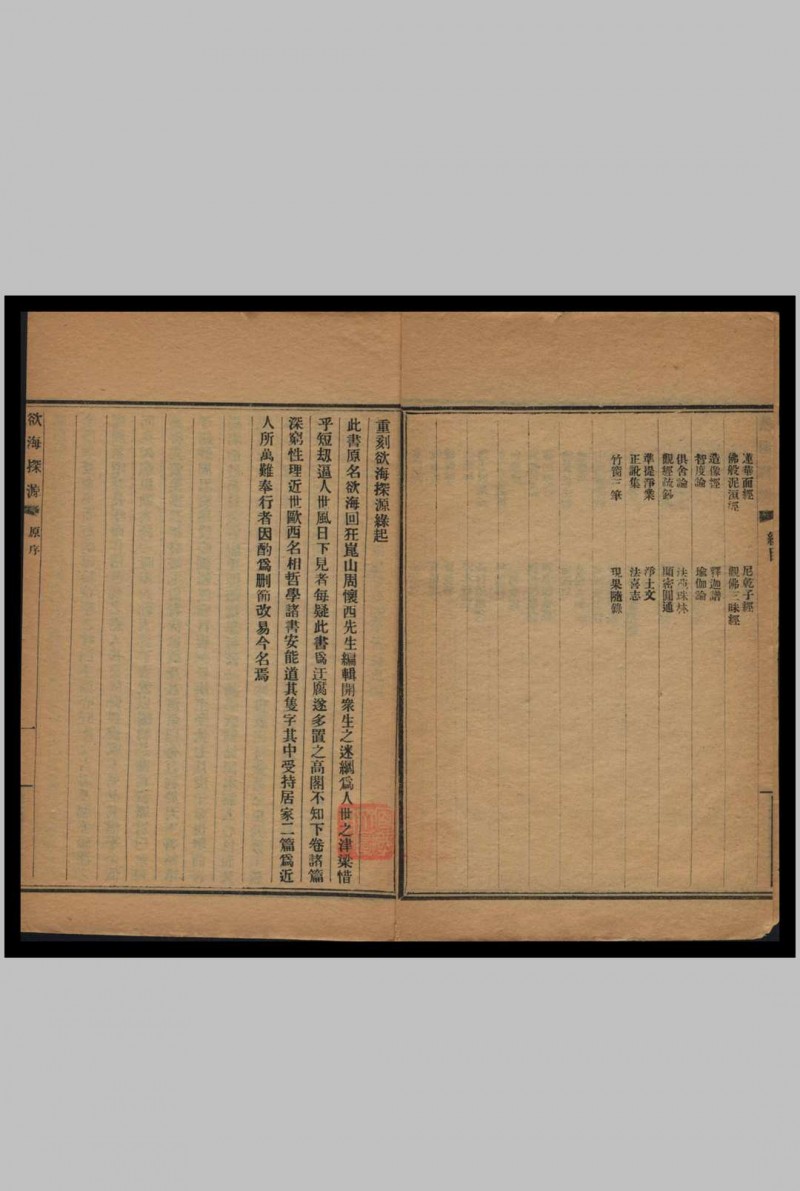 蓮華面經　尼乾子經
佛般泥洹經　觀佛三昧經
造像經　釋迦譜
智度論　瑜伽論
俱舍論　法苑珠林
觀經疏鈔　顯密圓通
準提淨業　淨土文
正訛集　法喜志
竹窗三筆　現果隨錄
重刻欲海探源緣起
此書原名欲海回狂崑山周懷西先生編輯開衆生之迷網爲人世之津梁惜
乎短刼逼人世風日下見者每疑此書爲迂腐遂多置之高閣不知下卷諸篇
深窮性理近世歐西名相哲學諸書安能道其隻字其中受持居家二篇爲近
人所萬難奉行者因酌爲刪節改易今名焉
欲海探源　原序　一